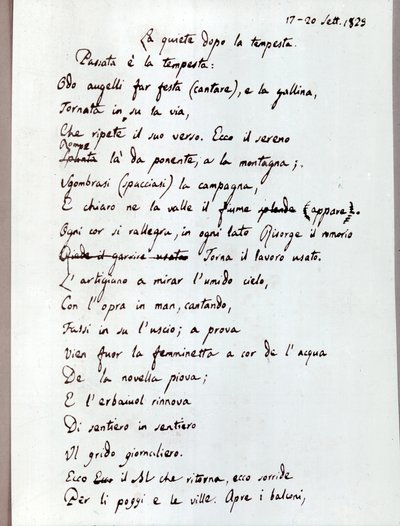 17-20 Sett. 1829
La quiete dopo la tempesta.
Passata è la tempesta:
Odo augelli far festa (cantare), e la gallina,
Tornata in su la via,
Che ripete il suo verso. Ecco il sereno
Rompe
là da ponente, a la montagna;.
Sgombrasi (spacciasi) la campagna,
E chiaro ne la valle il fiume splende (appare).
Ogni cor si rallegra, in ogni lato Risorge il romorio
Riede il garrire usato Torna il lavoro usato.
L'artigiano a mirar l'umido cielo,
Con l'opra in man, cantando,
Fassi in su l'uscio; a prova
Vien fuor la femminetta a cor de l'acqua
De la novella piova;
E l'erbaiuol rinnova
Di sentiero in sentiero
Il grido giornaliero.
Ecco Ecco il Sol che ritorna, ecco sorride
Per li poggi e le ville. Apre i balconi,